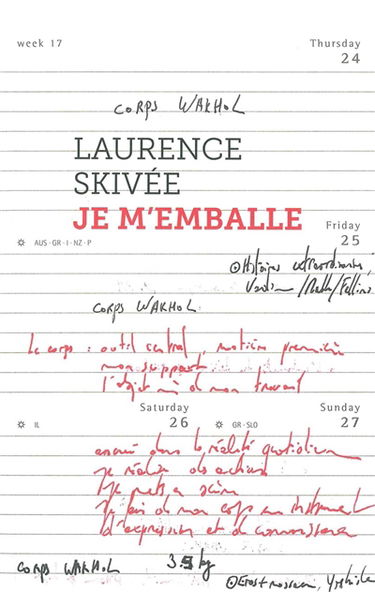 week 17
Thursday
24
CORPS WAKHOL
LAURENCE
SKIVÉE
JE M'EMBALLE
Friday
25
AUS·GR·I·NZ·P
Histoires extraordinaires,
Vadim/Malle/Fellini
CORPS WAKHOL
Le corps : outil central, matière première
mon support
l'objet de mon travail
Saturday
26
Sunday
27
IL
GR·SLO
ancré dans la réalité quotidienne
je réalise des actions
je mets en scène
je fais de mon corps un instrument
d'expression et de connaissance
CORPS WAKHOL
kg